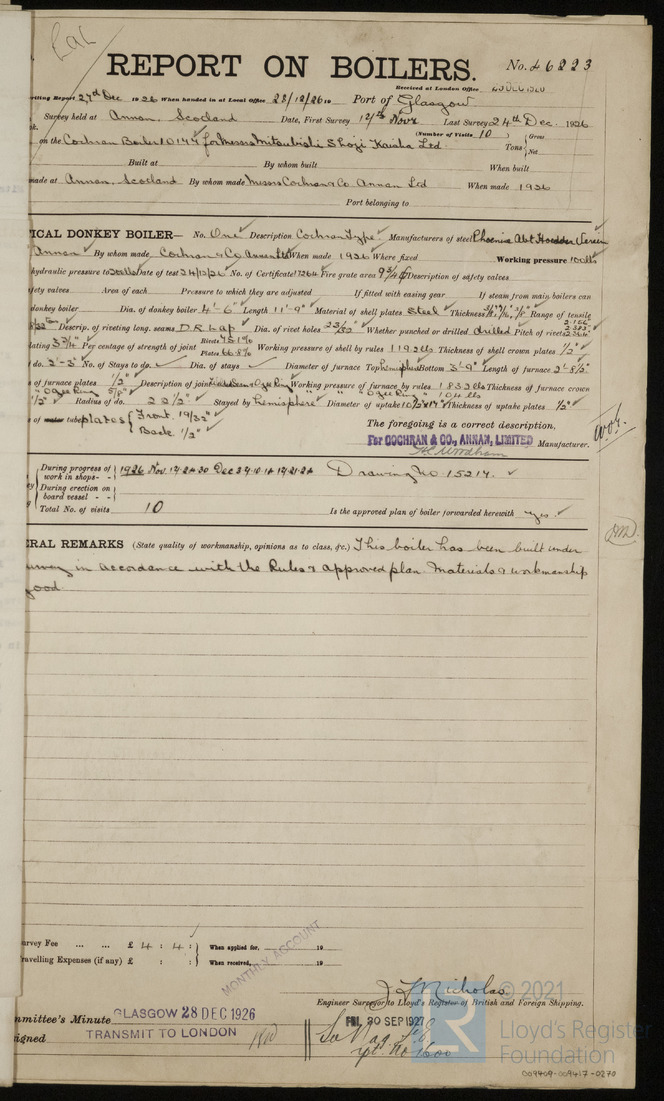 REPORT ON BOILERS. No. 46223
Received at London Office
writing Report 27th Dec 1926 When handed in at Local Office 28/12/26 19 Port of Glasgow
Survey held at Annan, Scotland Date, First Survey 12th Novr Last Survey 24th Dec. 1926
(Number of Visits 10 ) Gross
on the Cochran Boiler 10147 for Messrs Mitsubishi Shoji Kaisha Ltd. Tons Net
Built at By whom built When built
made at Annan, Scotland By whom made Messrs Cochran & Co. Annan Ltd When made 1926
Port belonging to
ICAL DONKEY BOILER— No. One Description Cochran Type. Manufacturers of steel Phoenix Abt Hoerder Verein
Annan By whom made Cochran & Co Annan Ltd When made 1926 Where fixed Working pressure 100 lbs
hydraulic pressure to 200 lbs Date of test 24/12/26 No. of Certificate 17264 Fire grate area 9 3/4 Description of safety valves
fety valves Area of each Pressure to which they are adjusted If fitted with easing gear If steam from main boilers can
donkey boiler Dia. of donkey boiler 4'-6" Length 11'-9" Material of shell plates Steel Thickness Range of tensile
Descrip. of riveting long. seams D.R. Lap Dia. of rivet holes 23/32" Whether punched or drilled drilled Pitch of rivets
lating 3 3/4" Per centage of strength of joint Rivets Plates 66.8% Working pressure of shell by rules 119.2 lbs. Thickness of shell crown plates 1/2"
do. 2'-3" No. of Stays to do. Dia. of stays Diameter of furnace Top hemisphere Bottom 3'-9" Length of furnace 2'-8 1/2"
s of furnace plates 1/2" Description of joint Working pressure of furnace by rules 183.2 lbs Thickness of furnace crown
" Ogee Ring 5/8" " " Ogee Ring " 104 lbs
1/2" Radius of do. 22 1/2" Stayed by hemisphere Diameter of uptake 10 1/2" x 17" Thickness of uptake plates 1/2"
s of water tube plates { Front. 19/32"
Back. 1/2"
The foregoing is a correct description,
For COCHRAN & CO., ANNAN, LIMITED Manufacturer.
During progress of work in shops - - 1926 Nov. 12. 24. 30 Dec Drawing No 15217.
During erection on board vessel - -
Total No. of visits 10 Is the approved plan of boiler forwarded herewith yes.
RAL REMARKS (State quality of workmanship, opinions as to class, &c.) This boiler has been built under
survey in accordance with the Rules & approved plan. Materials & workmanship
good.
urvey Fee ... ... £ 4 : 4 : When applied for, 19
ravelling Expenses (if any) £ : : When received, 19
MONTHLY ACCOUNT
J Nicholas.
Engineer Surveyor to Lloyd's Register of British and Foreign Shipping.
mmittee's Minute GLASGOW 28 DEC 1926
signed TRANSMIT TO LONDON
FRI. 30 SEP 1927
© 2021
LR
Lloyd's Register
Foundation
009409-009417-0270